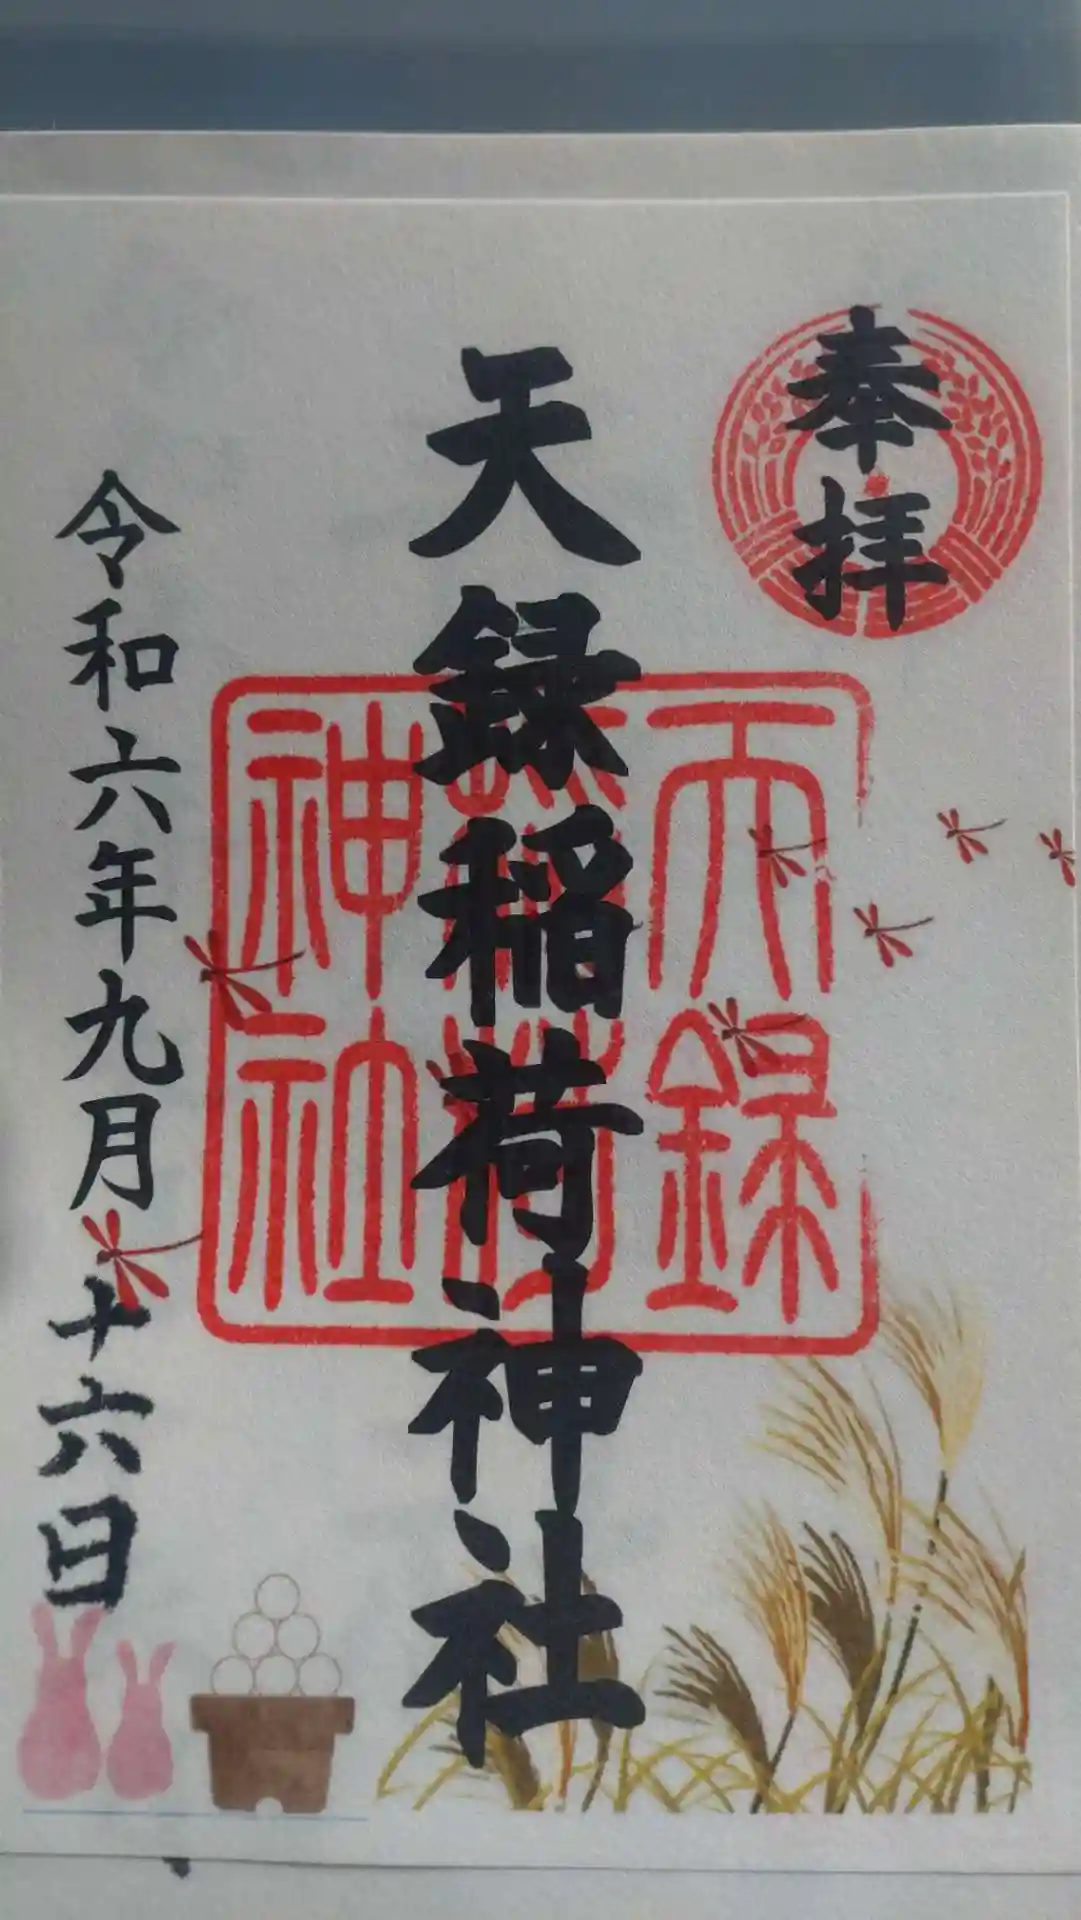 奉拝
天録稲荷神社
天録稲荷神社
令和六年九月十六日